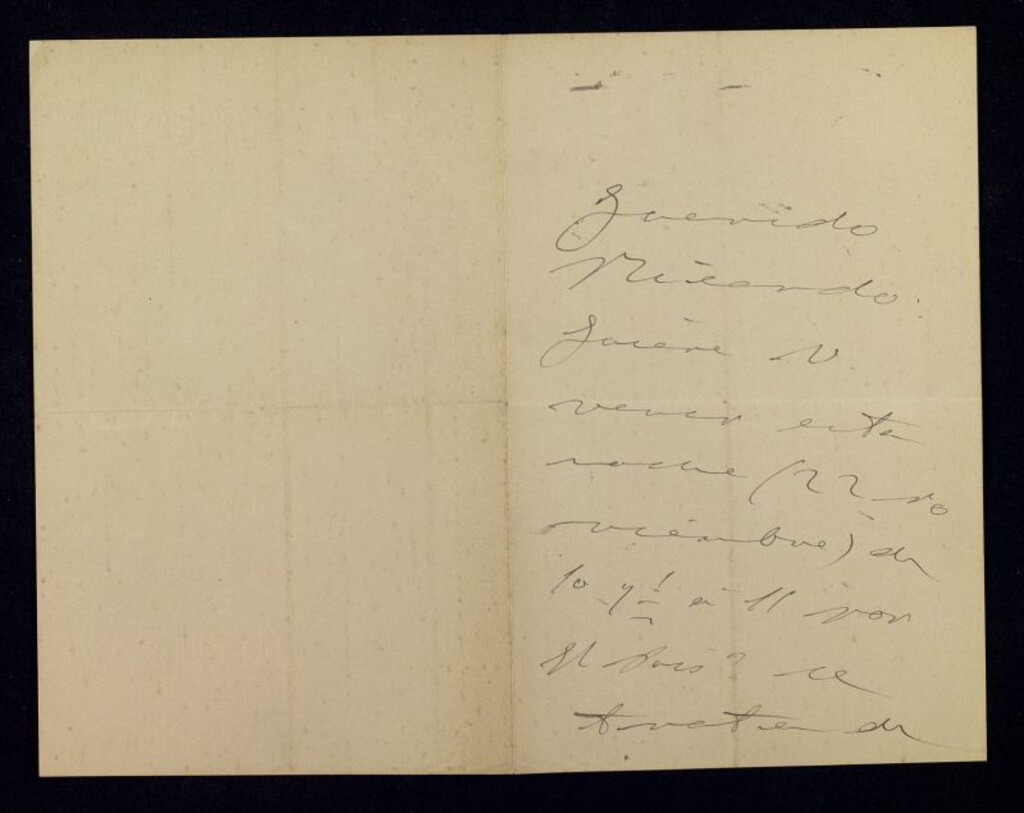 Querido
Ricardo:
Quiere V.
venir esta
noche (22 no
viembre) de
10 y ½ á 11 por
El Pais? se
trata de